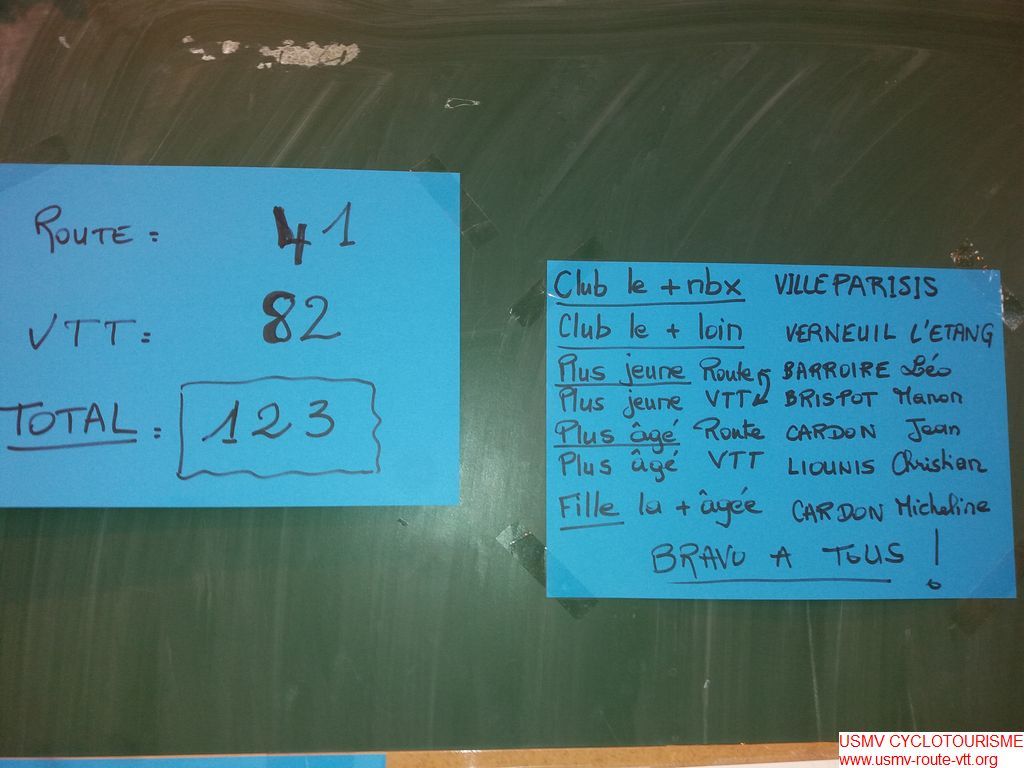 ROUTE = 41
VTT = 82
TOTAL = 123
Club le + nbx VILLEPARISIS
Club le + loin VERNEUIL L'ETANG
Plus jeune Route BARROIRE Léo
Plus jeune VTT BRISPOT Manon
Plus âgé Route CARDON Jean
Plus âgé VTT LIOUNIS Christian
Fille la + âgée CARDON Micheline
BRAVO A TOUS !
USMV CYCLOTOURISME
www.usmv-route-vtt.org